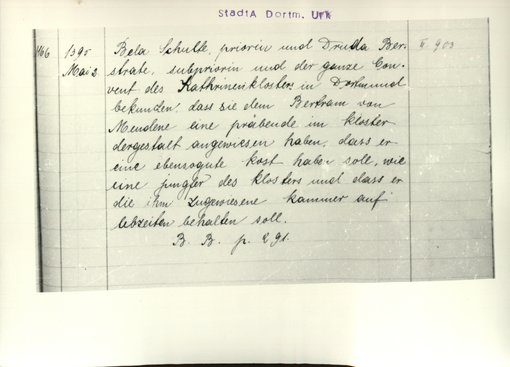 StadtA Dortm. Urk
466 1395 Bela Schulte, priorin und Druda Ber- II 903
Mai 2 strate, subpriorin und der ganze Con-
vent des Kathrinenklosters in Dortmund
bekunden, dass sie dem Bertram von
Mendene eine präbende im kloster
dergestalt angewiesen haben, dass er
eine ebensogute kost haben soll, wie
eine jungfer des klosters und dass er
die ihm zugewiesene kammer auf
lebzeiten behalten soll.
B. B. p. 291.